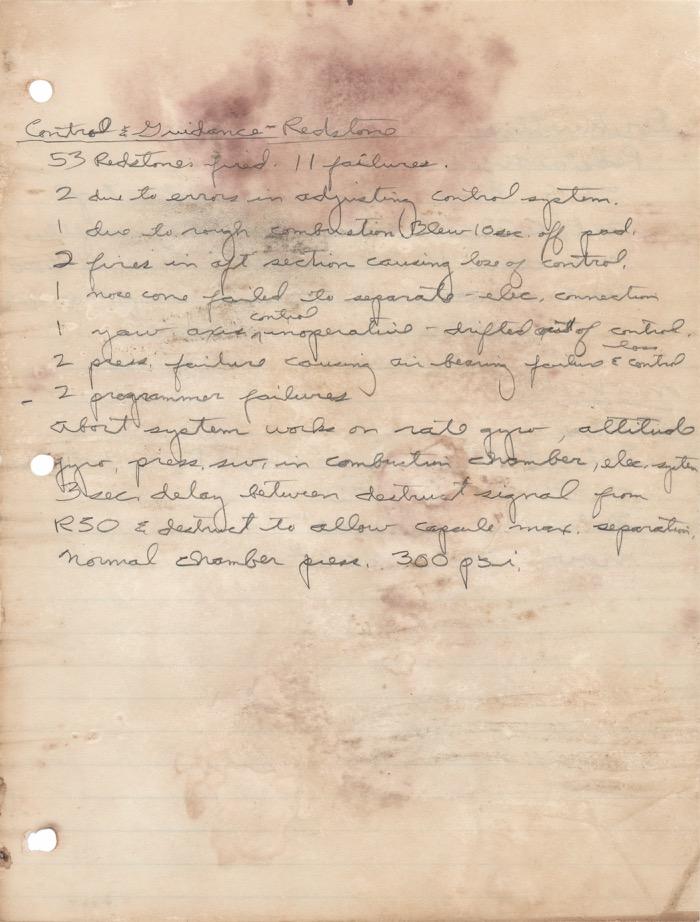 Control & Guidance - Redstone
53 Redstones fired. 11 failures.
2 due to errors in adjusting control system.
1 due to rough combustion (Blew 10 sec. off pad.
2 fires in aft section causing lose of control.
1 nose cone failed to separate - elec. connection
1 yaw axis control inoperative - drifted out of control.
2 press. failure causing air bearing failure & loss control
- 2 programmer failures
Abort system works on rate gyro, attitude
gyro, press. sw. in combustion chamber, elec. system
3 sec. delay between destruct signal from
RSO & destruct to allow capsule max. separation.
Normal chamber press. 300 psi.